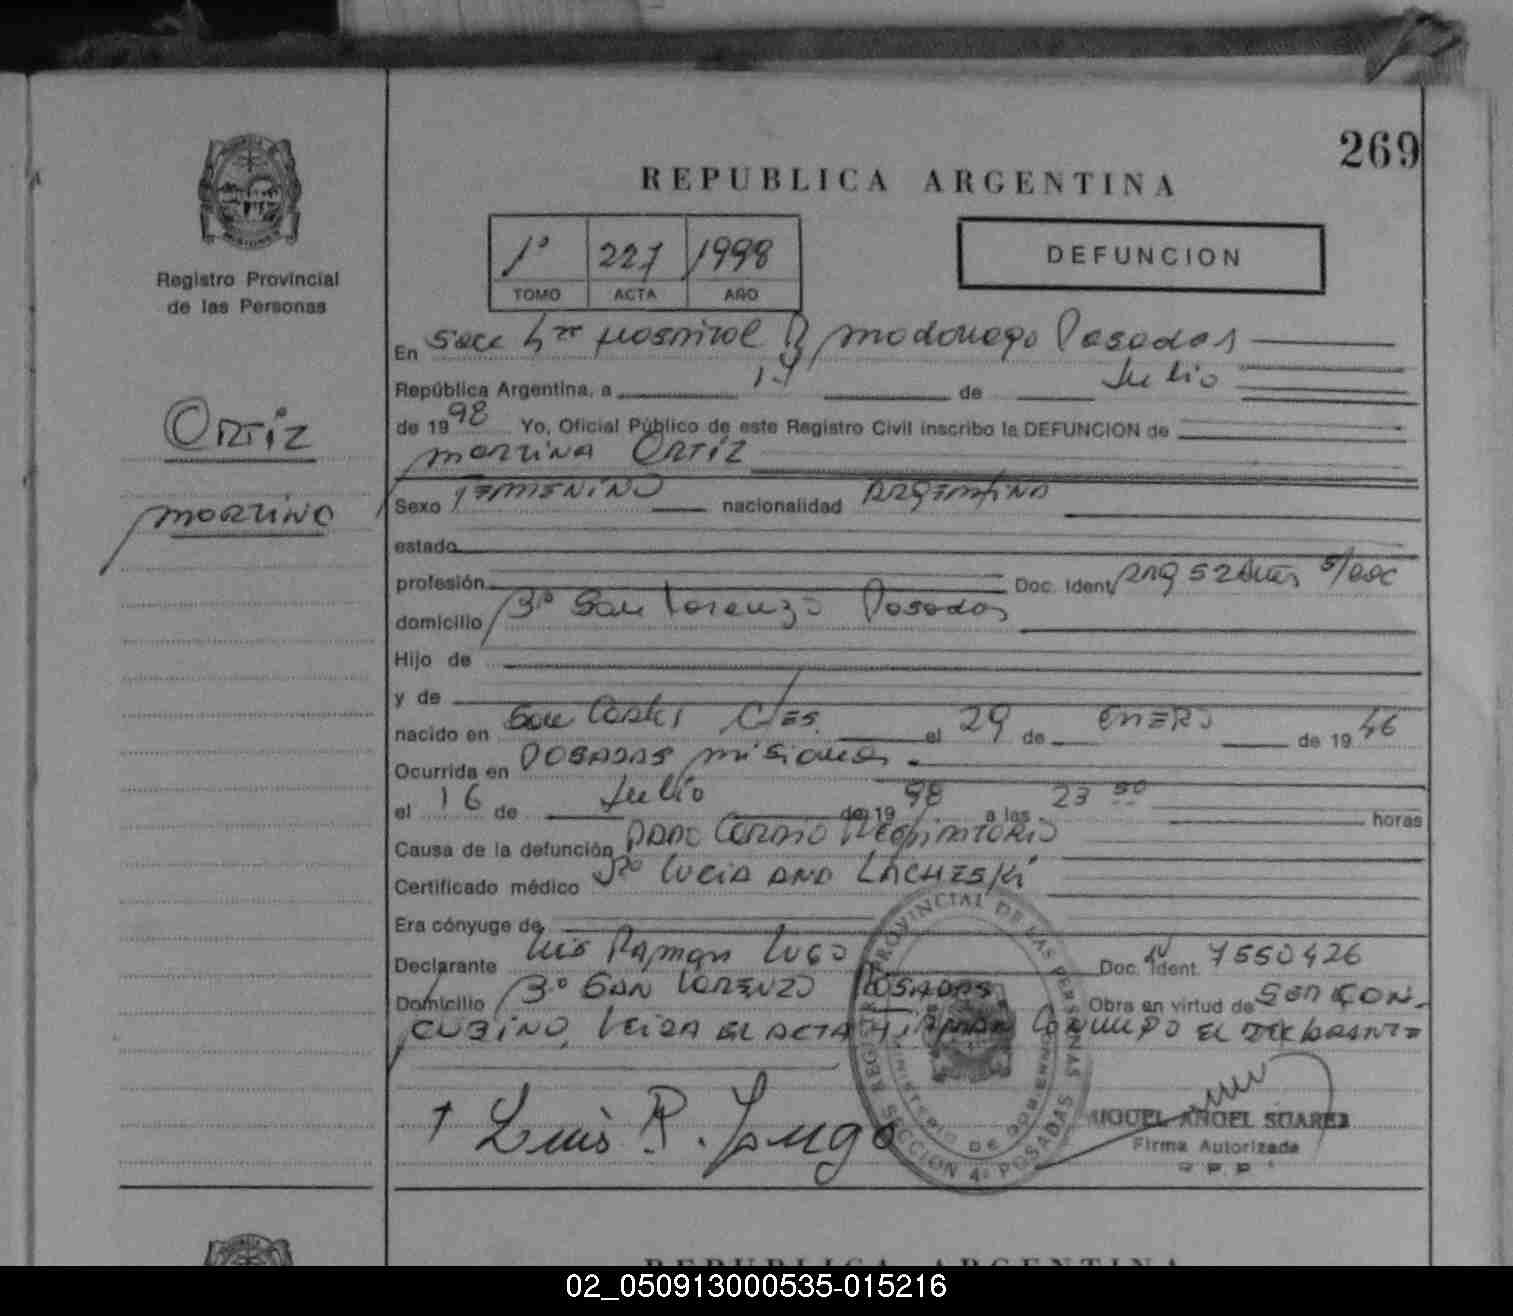 269
REPUBLICA ARGENTINA
Registro Provincial
de las Personas
1º 227 1998
TOMO ACTA AÑO
DEFUNCION
En Secc 4ta Hospital R Madariaga Posadas
República Argentina, a 17 de Julio
de 1998 Yo, Oficial Público de este Registro Civil inscribo la DEFUNCION de
Ortiz
Martina Ortiz
Martina
Sexo Femenino nacionalidad Argentina
estado
profesión Doc. Ident. Arg 52 Años S/Doc
domicilio Bº San Lorenzo Posadas
Hijo de
y de
nacido en San Carlos C/es. el 29 de Enero de 1946
Ocurrida en Posadas Misiones
el 16 de Julio de 1998 a las 23 50 horas
Causa de la defunción Paro Cardio Respiratorio
Certificado médico Dra Lucia Ana Lacheski
Era cónyuge de
Declarante Luis Ramon Lugo Doc. Ident. 7550426
Domicilio Bº San Lorenzo Posadas Obra en virtud de Ser Con-
cubino, Leida el acta firman Conmigo el Declarante
Luis R. Lugo
REGISTRO PROVINCIAL DE LAS PERSONAS
MINISTERIO DE GOBIERNO
SECCION 4ª POSADAS
MIGUEL ANGEL SUAREZ
Firma Autorizada
R. P. P.
REPUBLICA ARGENTINA
02_050913000535-015216